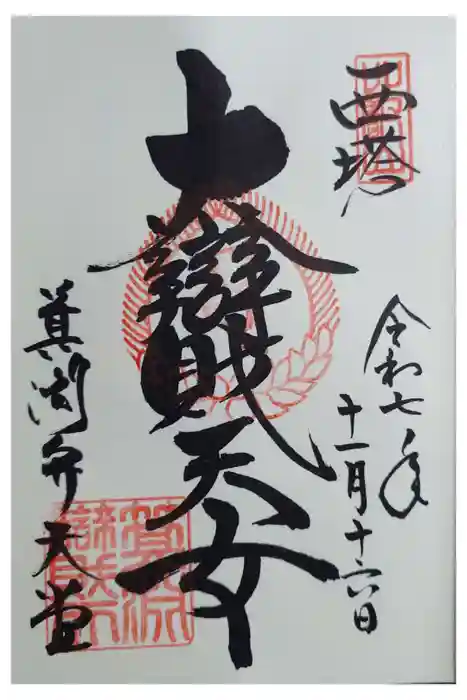 西塔
令和七年
十一月十六日
大辯財天女
箕淵弁天堂